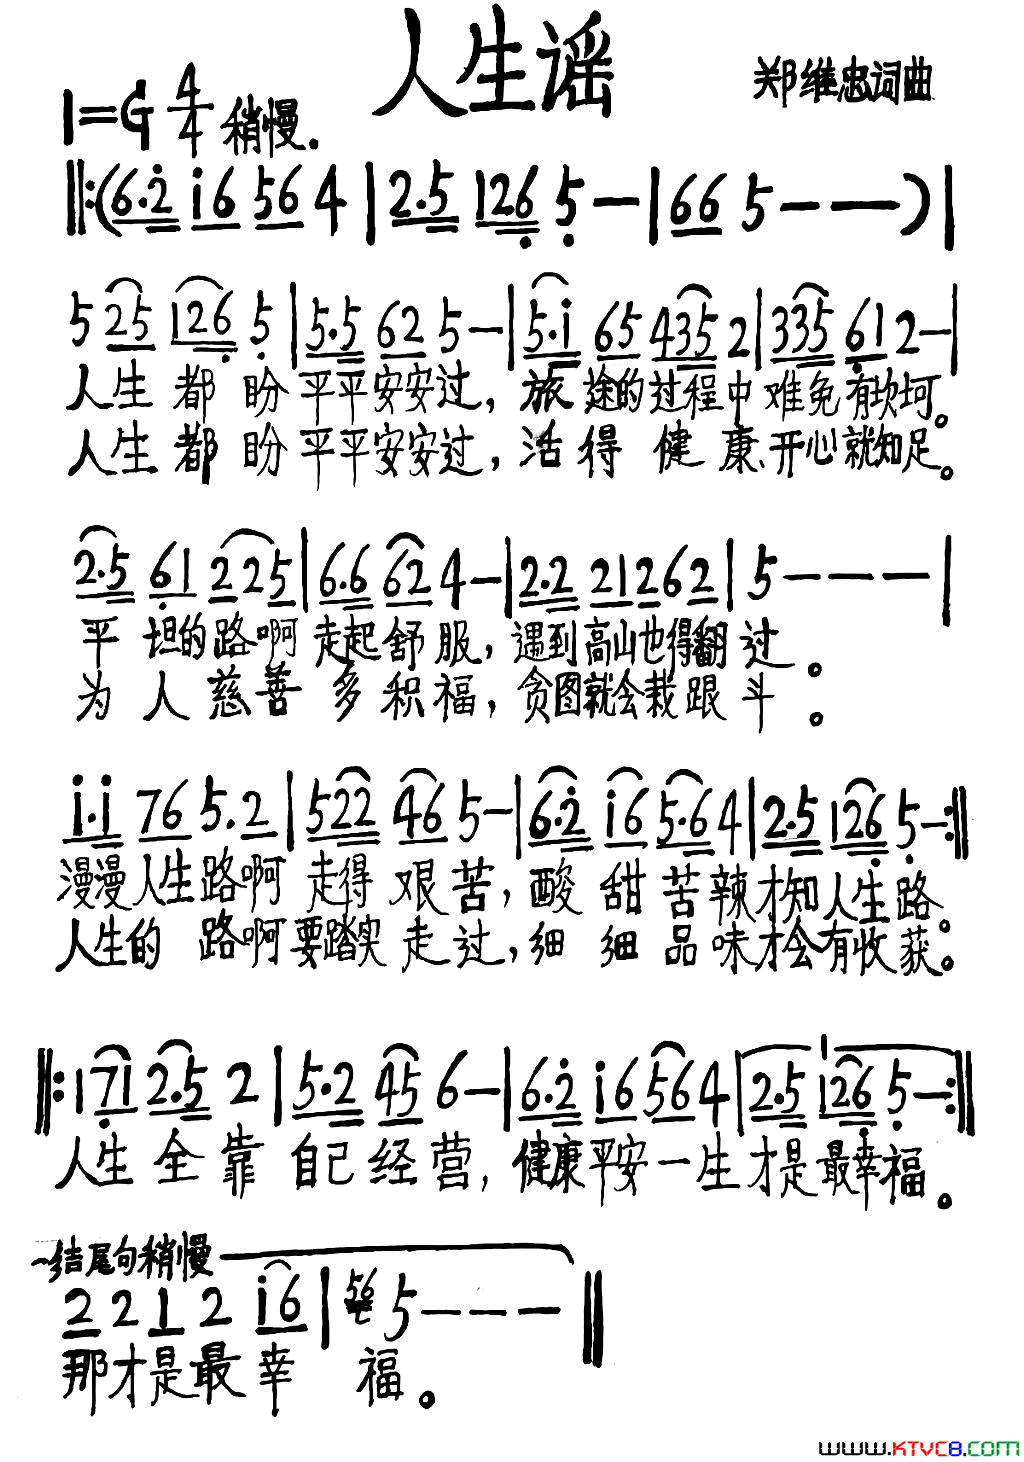 人生谣
郑维忠词曲
1=G 4/4 稍慢.
‖:(6·2̇ i̇6 56 4 | 2·5 126̣ 5̣ — | 66 5 — — ) |
5 25 126̣ 5̣ | 5·5 62 5 — | 5·i̇ 65 435 2 | 335 6̣1 2 — |
人生都盼平平安安过，旅途的过程中难免有坎坷。
人生都盼平平安安过，活得健康、开心就知足。
2·5 6̣1 225 | 6·6 62 4 — | 2·2 21262 | 5 — — — |
平坦的路啊走起舒服，遇到高山也得翻过。
为人慈善多积福，贪图就会栽跟斗。
i̇·i̇ 76 5·2 | 522 46 5 — | 6·2̇ i̇6 5·6 4 | 2·5 126̣ 5̣ — :‖
漫漫人生路啊走得艰苦，酸甜苦辣才知人生路。
人生的路啊要踏实走过，细细品味才会有收获。
‖: 17̣1 2·5 2 | 5·2 45 6 — | 6·2̇ i̇6 56 4 | 2·5 126̣ 5̣ — :‖
人生全靠自己经营，健康平安一生才是最幸福。
结尾句稍慢
2 2 1 2 i̇6 | 56 5 — — — ‖
那才是最幸福。
www.KTVC8.com